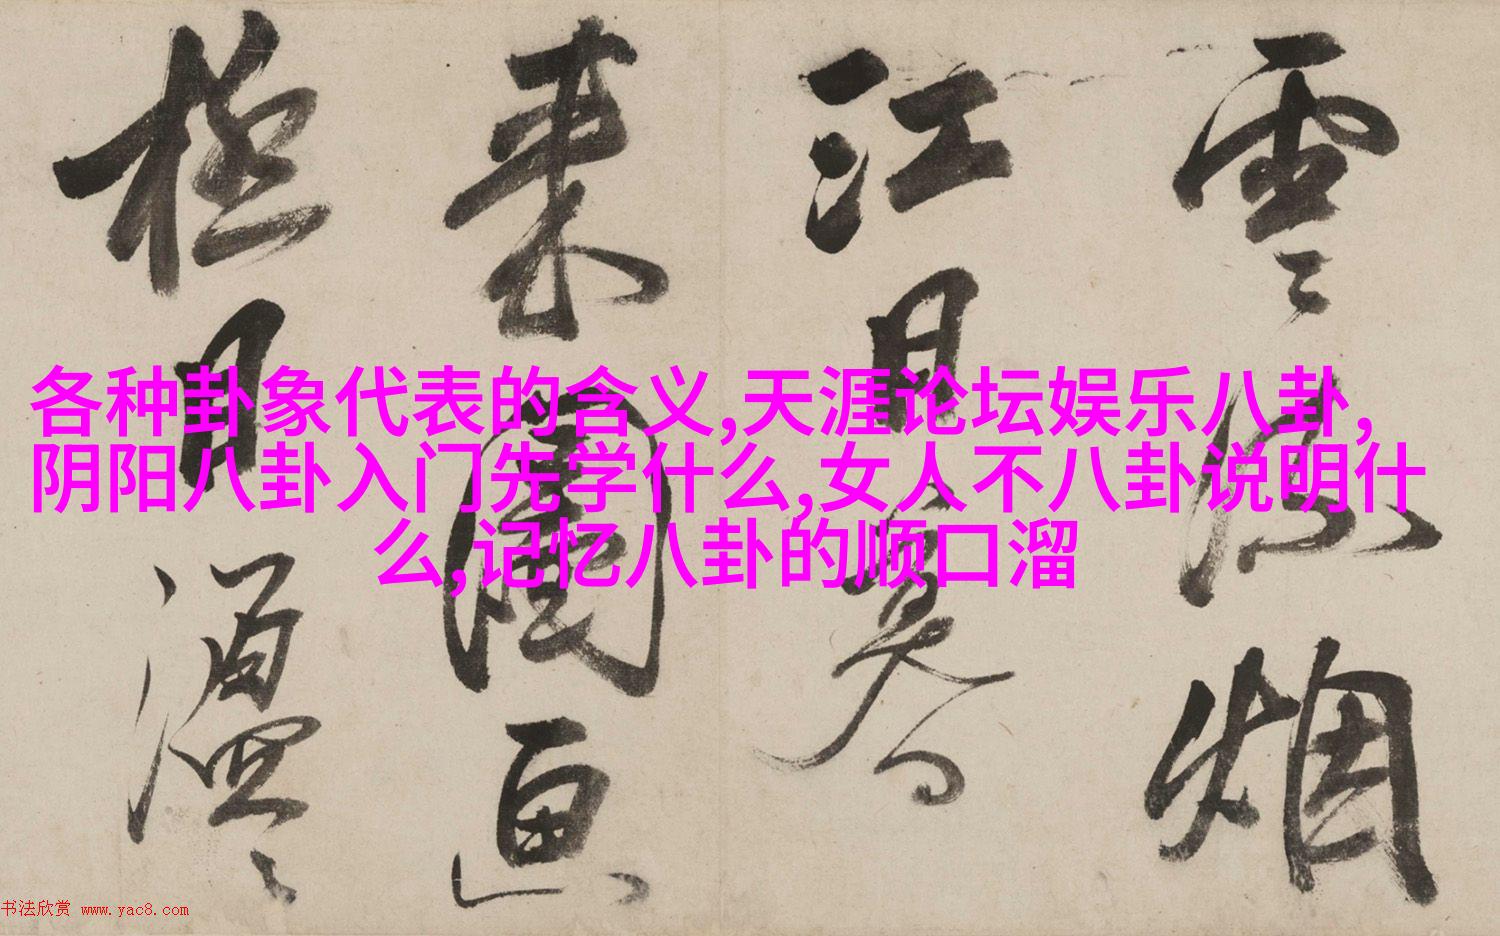 各种卦象代表的含义,天涯论坛娱乐八卦,
阴阳八卦入门先学什么,女人不八卦说明什
么,记忆八卦的顺口溜
雲烟
江
来圖画
極
书法欣赏 www.yac8.com